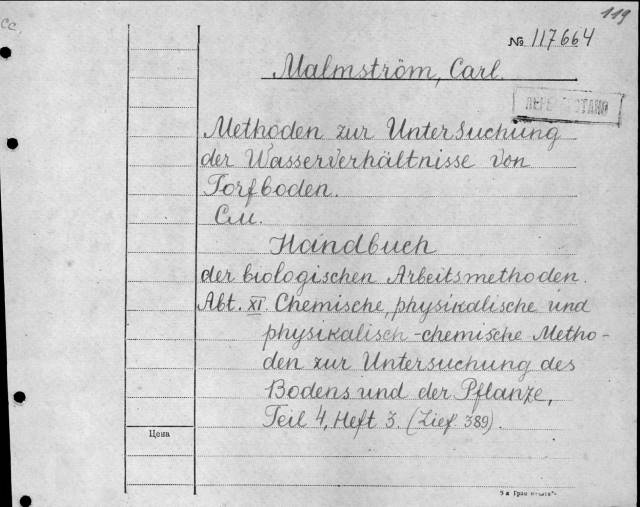 119
сс.
№ 117664
Malmström, Carl.
Methoden zur Untersuchung
der Wasserverhältnisse von
Torfboden.
См.
Handbuch
der biologischen Arbeitsmethoden.
Abt. XI. Chemische, physikalische und
physikalisch-chemische Metho-
den zur Untersuchung des
Bodens und der Pflanze,
Teil 4, Heft 3. (Lief. 389).
Цена